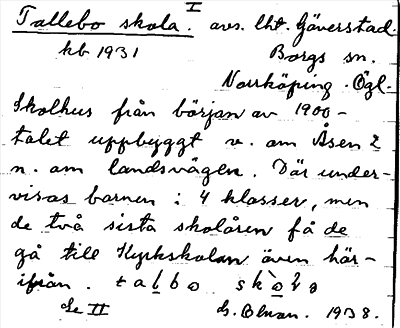 I
Tallebo skola. avs. lht. Gåverstad.
kb 1931 Borgs sn.
Norrköping. Ögl.
Skolhus från början av 1900-
talet uppbyggt v. om Åsen 2
n. om landsvägen. Där under-
visas barnen i 4 klasser, men
de två sista skolåren få de
gå till Kyrkskolan även här-
ifrån.
Se II 1938.